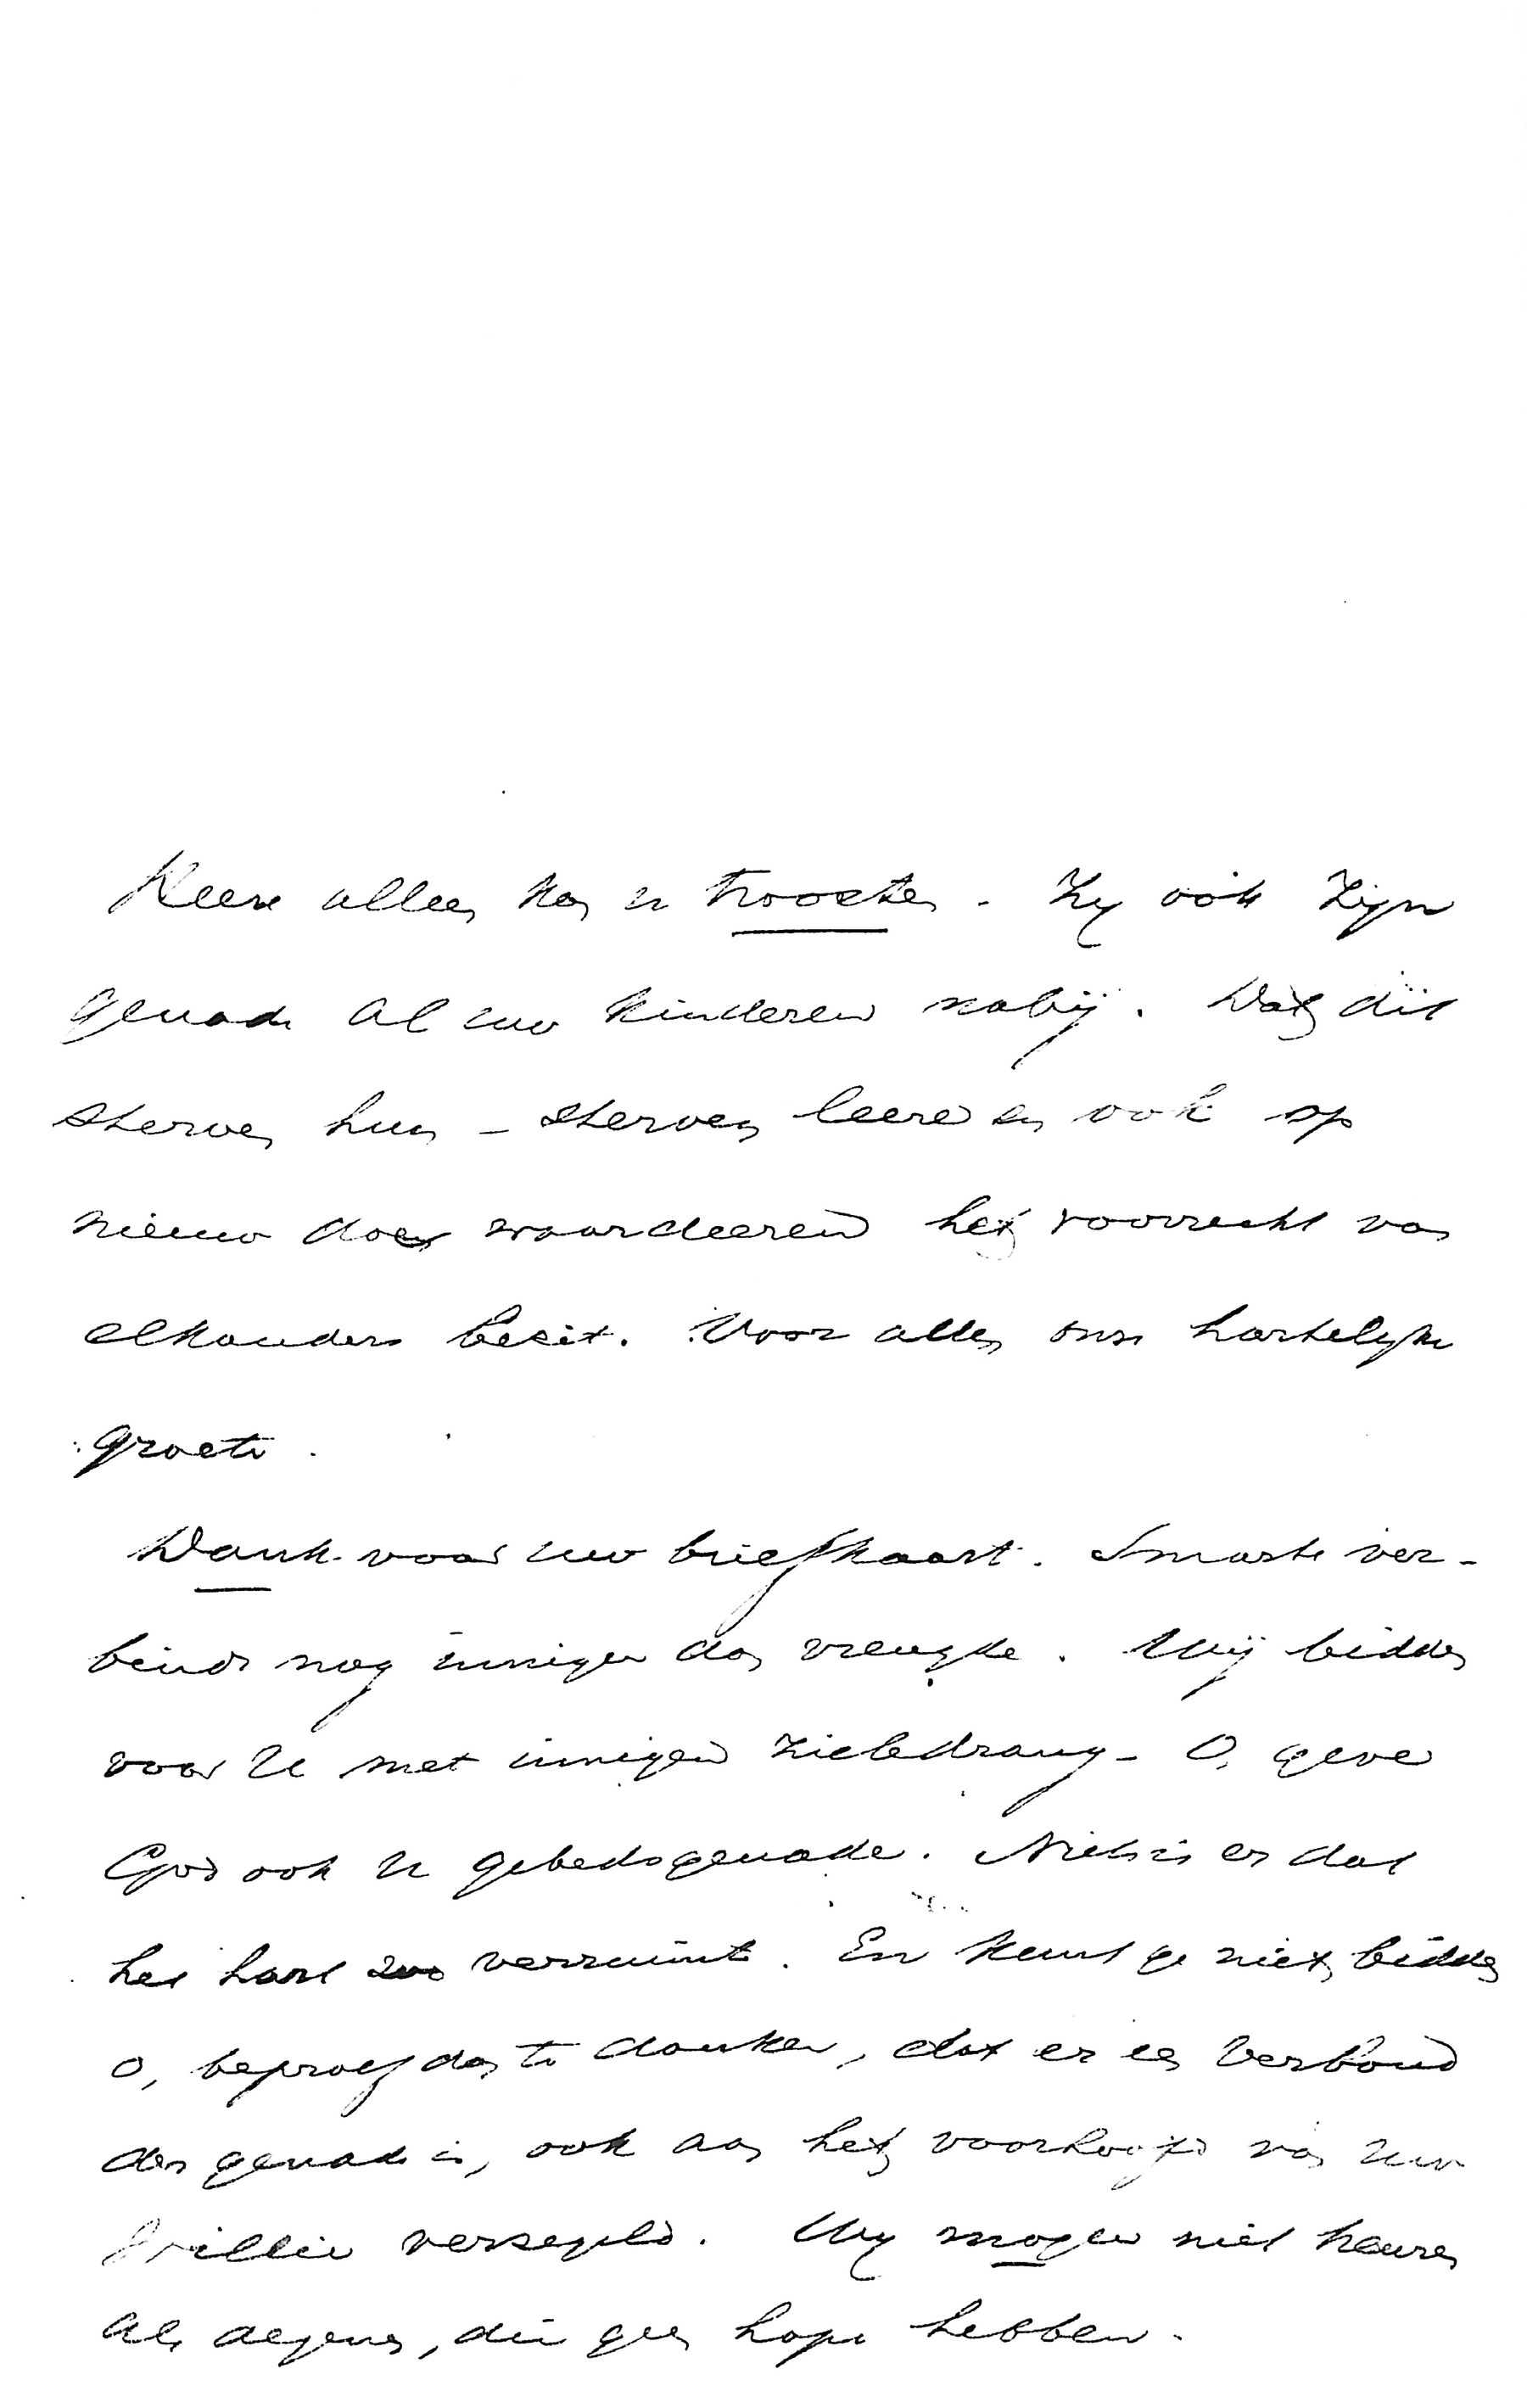 Heere alleen kan u troosten. Zij ook Zijn
genade al uw kinderen nabij. Dat dit
sterven hun – sterven leere en ook op
nieuw doen waardeeren het voorrecht van
elkanders bezit. Voor allen onze hartelijke
groete.
Dank voor uw briefkaart. Smarte ver-
bindt nog inniger dan vreugde. Wij bidden
voor U met innigen zieledrang – O, geve
God ook U gebedsgenade. Niets is er dat
het hart zoo verruimt. En kunt ge niet bidden
o, beproef dan te danken, dat er een Verbond
der genade is, ook aan het voorhoofd van uw
Willie verzegeld. Wij mogen niet treuren
als degenen, die geen hope hebben.